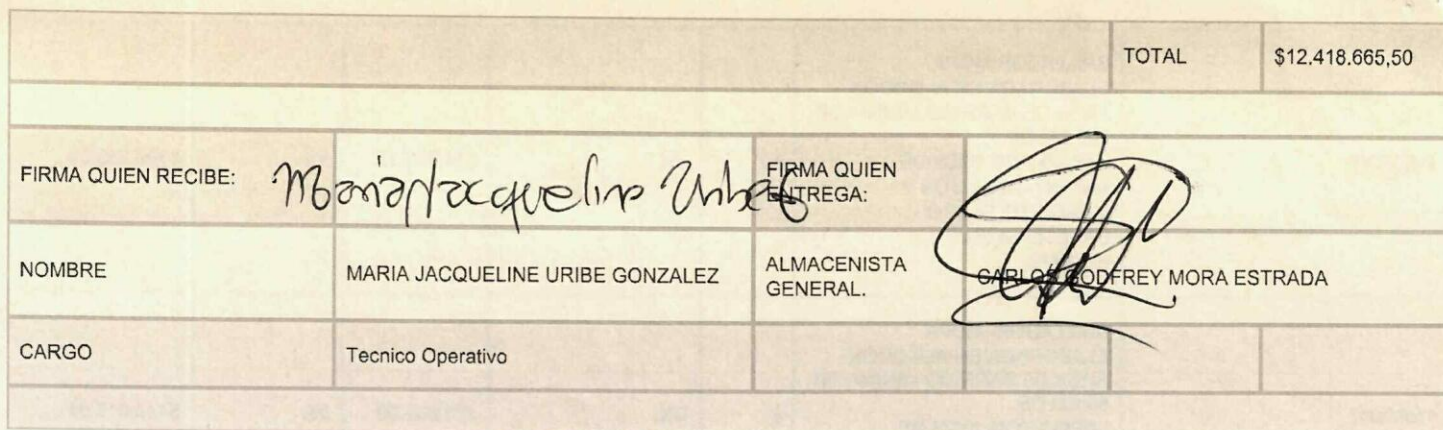 TOTAL $12.418.665,50
FIRMA QUIEN RECIBE: Maria Jacqueline Uribe G FIRMA QUIEN ENTREGA:
NOMBRE MARIA JACQUELINE URIBE GONZALEZ ALMACENISTA GENERAL. CARLOS GODFREY MORA ESTRADA
CARGO Tecnico Operativo